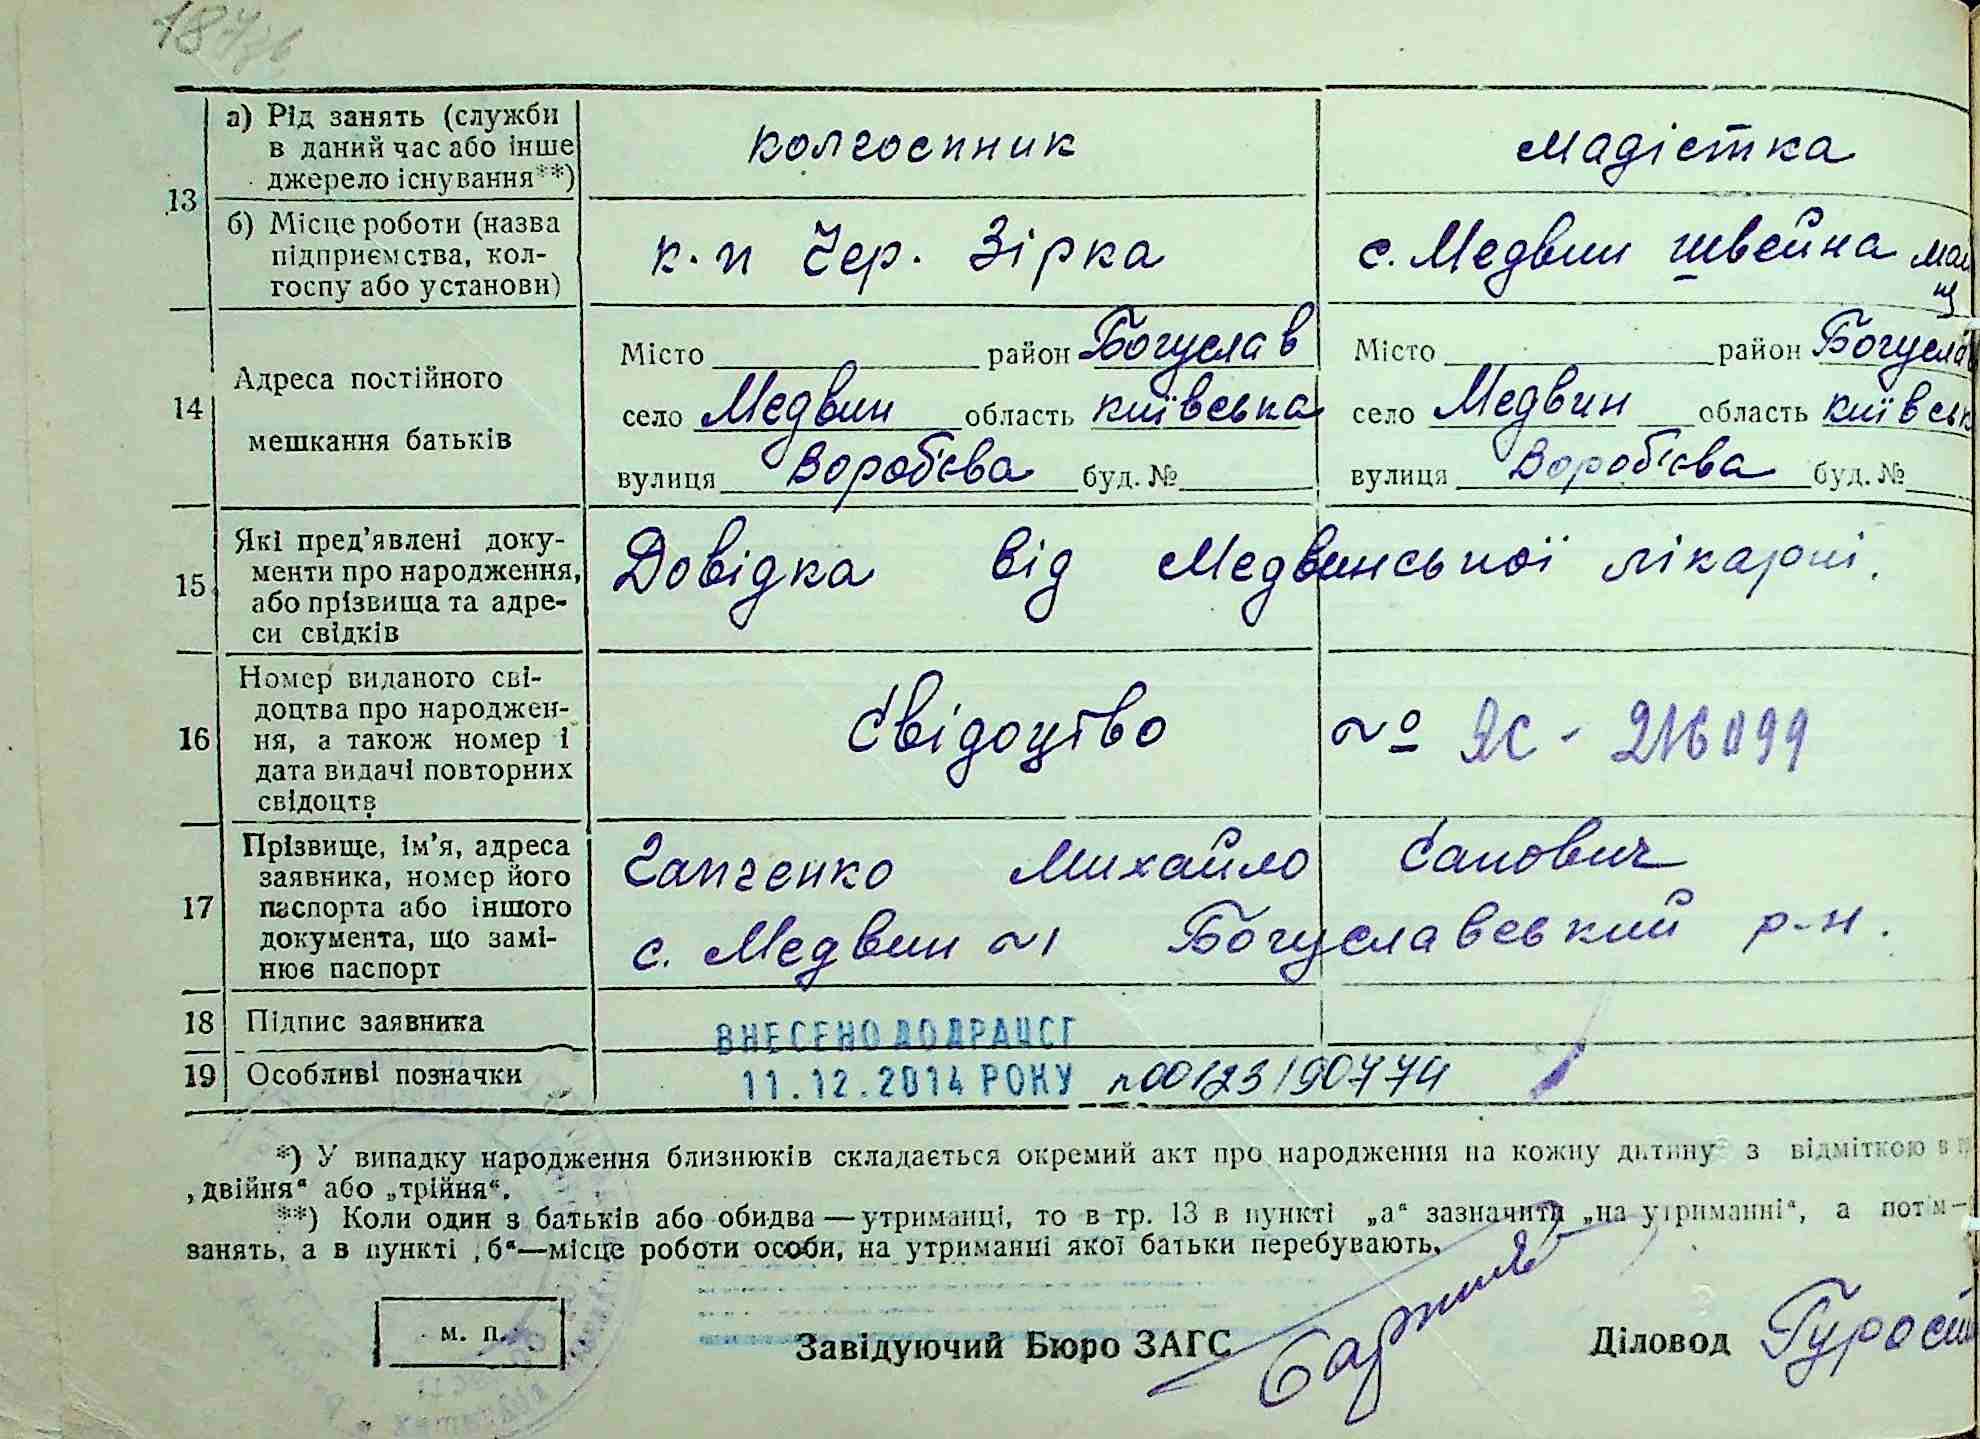 187
13
а) Рід занять (служби
в даний час або інше
джерело існування**)
колгоспник
мадістка
б) Місце роботи (назва
підприємства, кол-
госпу або установи)
к-п Чер. Зірка
с. Медвин швейна май
14
Адреса постійного
мешкання батьків
Місто район Богуслав
село Медвин область київська
вулиця Вороб'єва буд. №
Місто район Богуслав
село Медвин область київськ
вулиця Вороб'єва буд. №
15
Які пред'явлені доку-
менти про народження,
або прізвища та адре-
си свідків
Довідка від Медвинської лікарні.
16
Номер виданого сві-
доцтва про народжен-
ня, а також номер і
дата видачі повторних
свідоцтв
Свідоцтво № ЯС - 216099
17
Прізвище, ім'я, адреса
заявника, номер його
паспорта або іншого
документа, що замі-
нює паспорт
Гапченко Михайло Сапович
с. Медвин Богуславський р-н.
18 Підпис заявника
19 Особливі позначки
ВНЕСЕНО ДО ДРАЦСГ
11.12.2014 РОКУ n00123190774
*) У випадку народження близнюків складається окремий акт про народження на кожну дитину з відміткою в
„двійня“ або „трійня“.
**) Коли один з батьків або обидва — утриманці, то в гр. 13 в пункті „а“ зазначити „на утриманні“, а потім —
занять, а в пункті „б“—місце роботи особи, на утриманні якої батьки перебувають.
м. п.
Завідуючий Бюро ЗАГС
Діловод